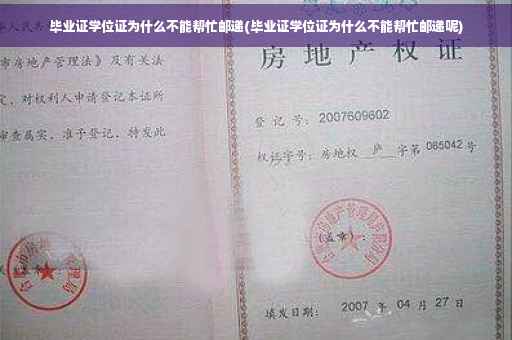 毕业证学位证为什么不能帮忙邮递(毕业证学位证为什么不能帮忙邮递呢)
市房地产管理法》及有关法
定，对权利人申请登记本证所
审查属实，准予登记，特发此
房地产权证
登记号：2007609602
权证字号：房地权 庐 字第 065042 号
(盖章)：
填发日期：2007 年 04 月 27 日